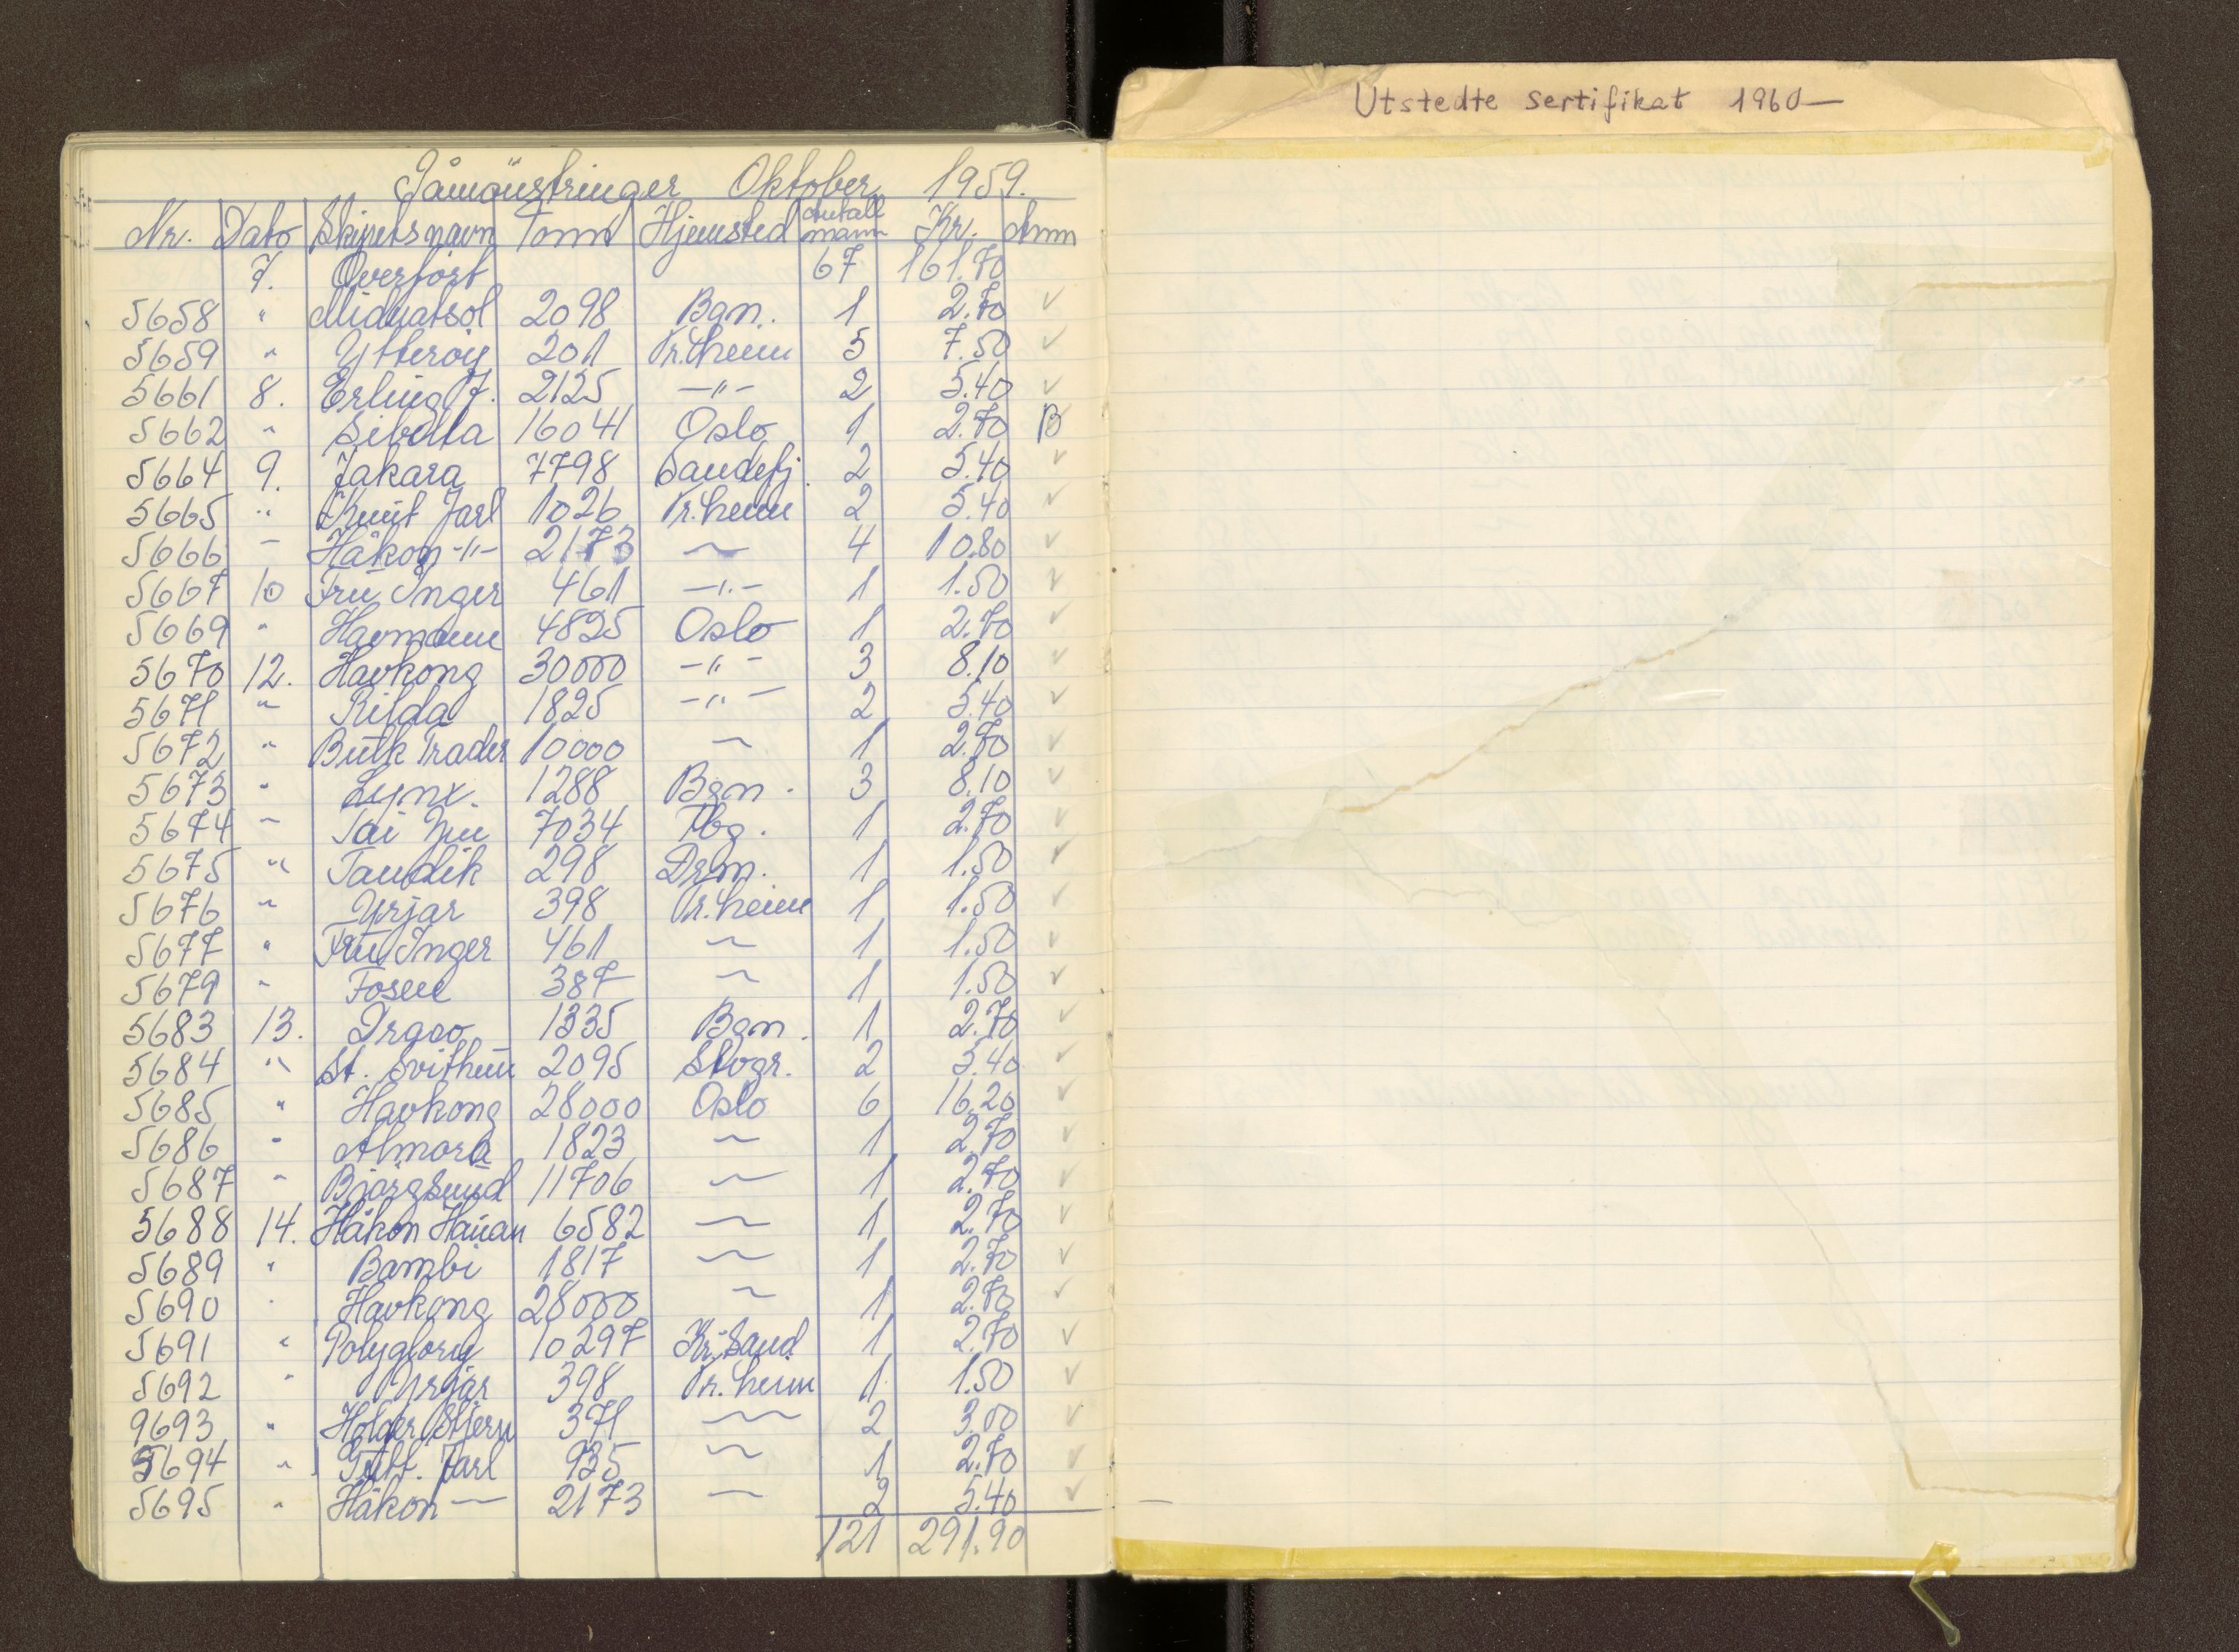 Utstedte sertifikat 1960—
Påmönstringer Oktober 1959.
Nr. Dato Skipets navn Tonn Hjemsted Antall mann Kr. Anm
7. Overfört 67 161.70
5658 " Midnatsol 2098 Bgn. 1 2.70 ✓
5659 " Ytteröy 201 Tr.heim 5 7.50 ✓
5661 8. Erling J. 2125 -"- 2 5.40 ✓
5662 " Sibilla 16041 Oslo 1 2.70 B
5664 9. Jakara 7798 Sandefj. 2 5.40 ✓
5665 " Knut Jarl 1026 Tr.heim 2 5.40 ✓
5666 — Håkon -"- 2173 — 4 10.80 ✓
5667 10 Fru Inger 461 -"- 1 1.50 ✓
5669 " Havmann 4825 Oslo 1 2.70 ✓
5670 12. Havkong 30000 -"- 3 8.10 ✓
5671 " Rilda 1825 -"- 2 5.40 ✓
5672 " Bulk Trader 10000 — 1 2.70 ✓
5673 " Lynx. 1288 Bgn. 3 8.10 ✓
5674 — Tai Yin 7034 Tbg. 1 2.70 ✓
5675 " Taudik 298 Drm. 1 1.50 ✓
5676 " Yrjar 398 Tr.heim 1 1.50 ✓
5677 " Fru Inger 461 — 1 1.50 ✓
5679 " Fosen 387 — 1 1.50 ✓
5683 13. Draco 1335 Bgn. 1 2.70 ✓
5684 " St. Svithun 2095 Stvgr. 2 5.40 ✓
5685 " Havkong 28000 Oslo 6 16.20 ✓
5686 " Almora 1823 — 1 2.70 ✓
5687 " Björgsund 11706 — 1 2.70 ✓
5688 14. Håkon Hauan 6582 — 1 2.70 ✓
5689 " Bambi 1817 — 1 2.70 ✓
5690 " Havkong 28000 — 1 2.70 ✓
5691 " Polyglory 10297 Kr.sand 1 2.70 ✓
5692 " Yrjar 398 Tr.heim 1 1.50 ✓
9693 " Holger Stjern 371 — 2 3.00 ✓
5694 " Gutt. Jarl 935 — 1 2.70 ✓
5695 " Håkon — 2173 — 2 5.40 ✓
121 291.90